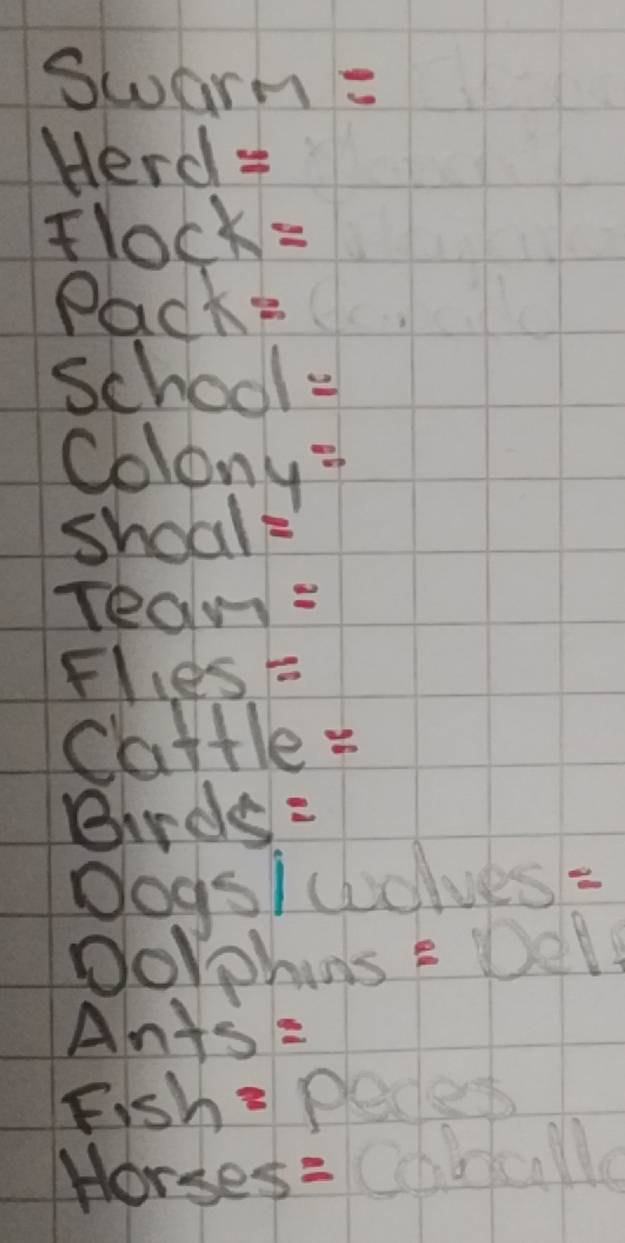 Swarm =
Herd =
Flock =
Pack =
School =
Colony =
Shoal =
Team =
Flies =
Cattle =
Birds =
Dogs/wolves =
Dolphins = Delf
Ants =
Fish = Peces
Horses = Caballo